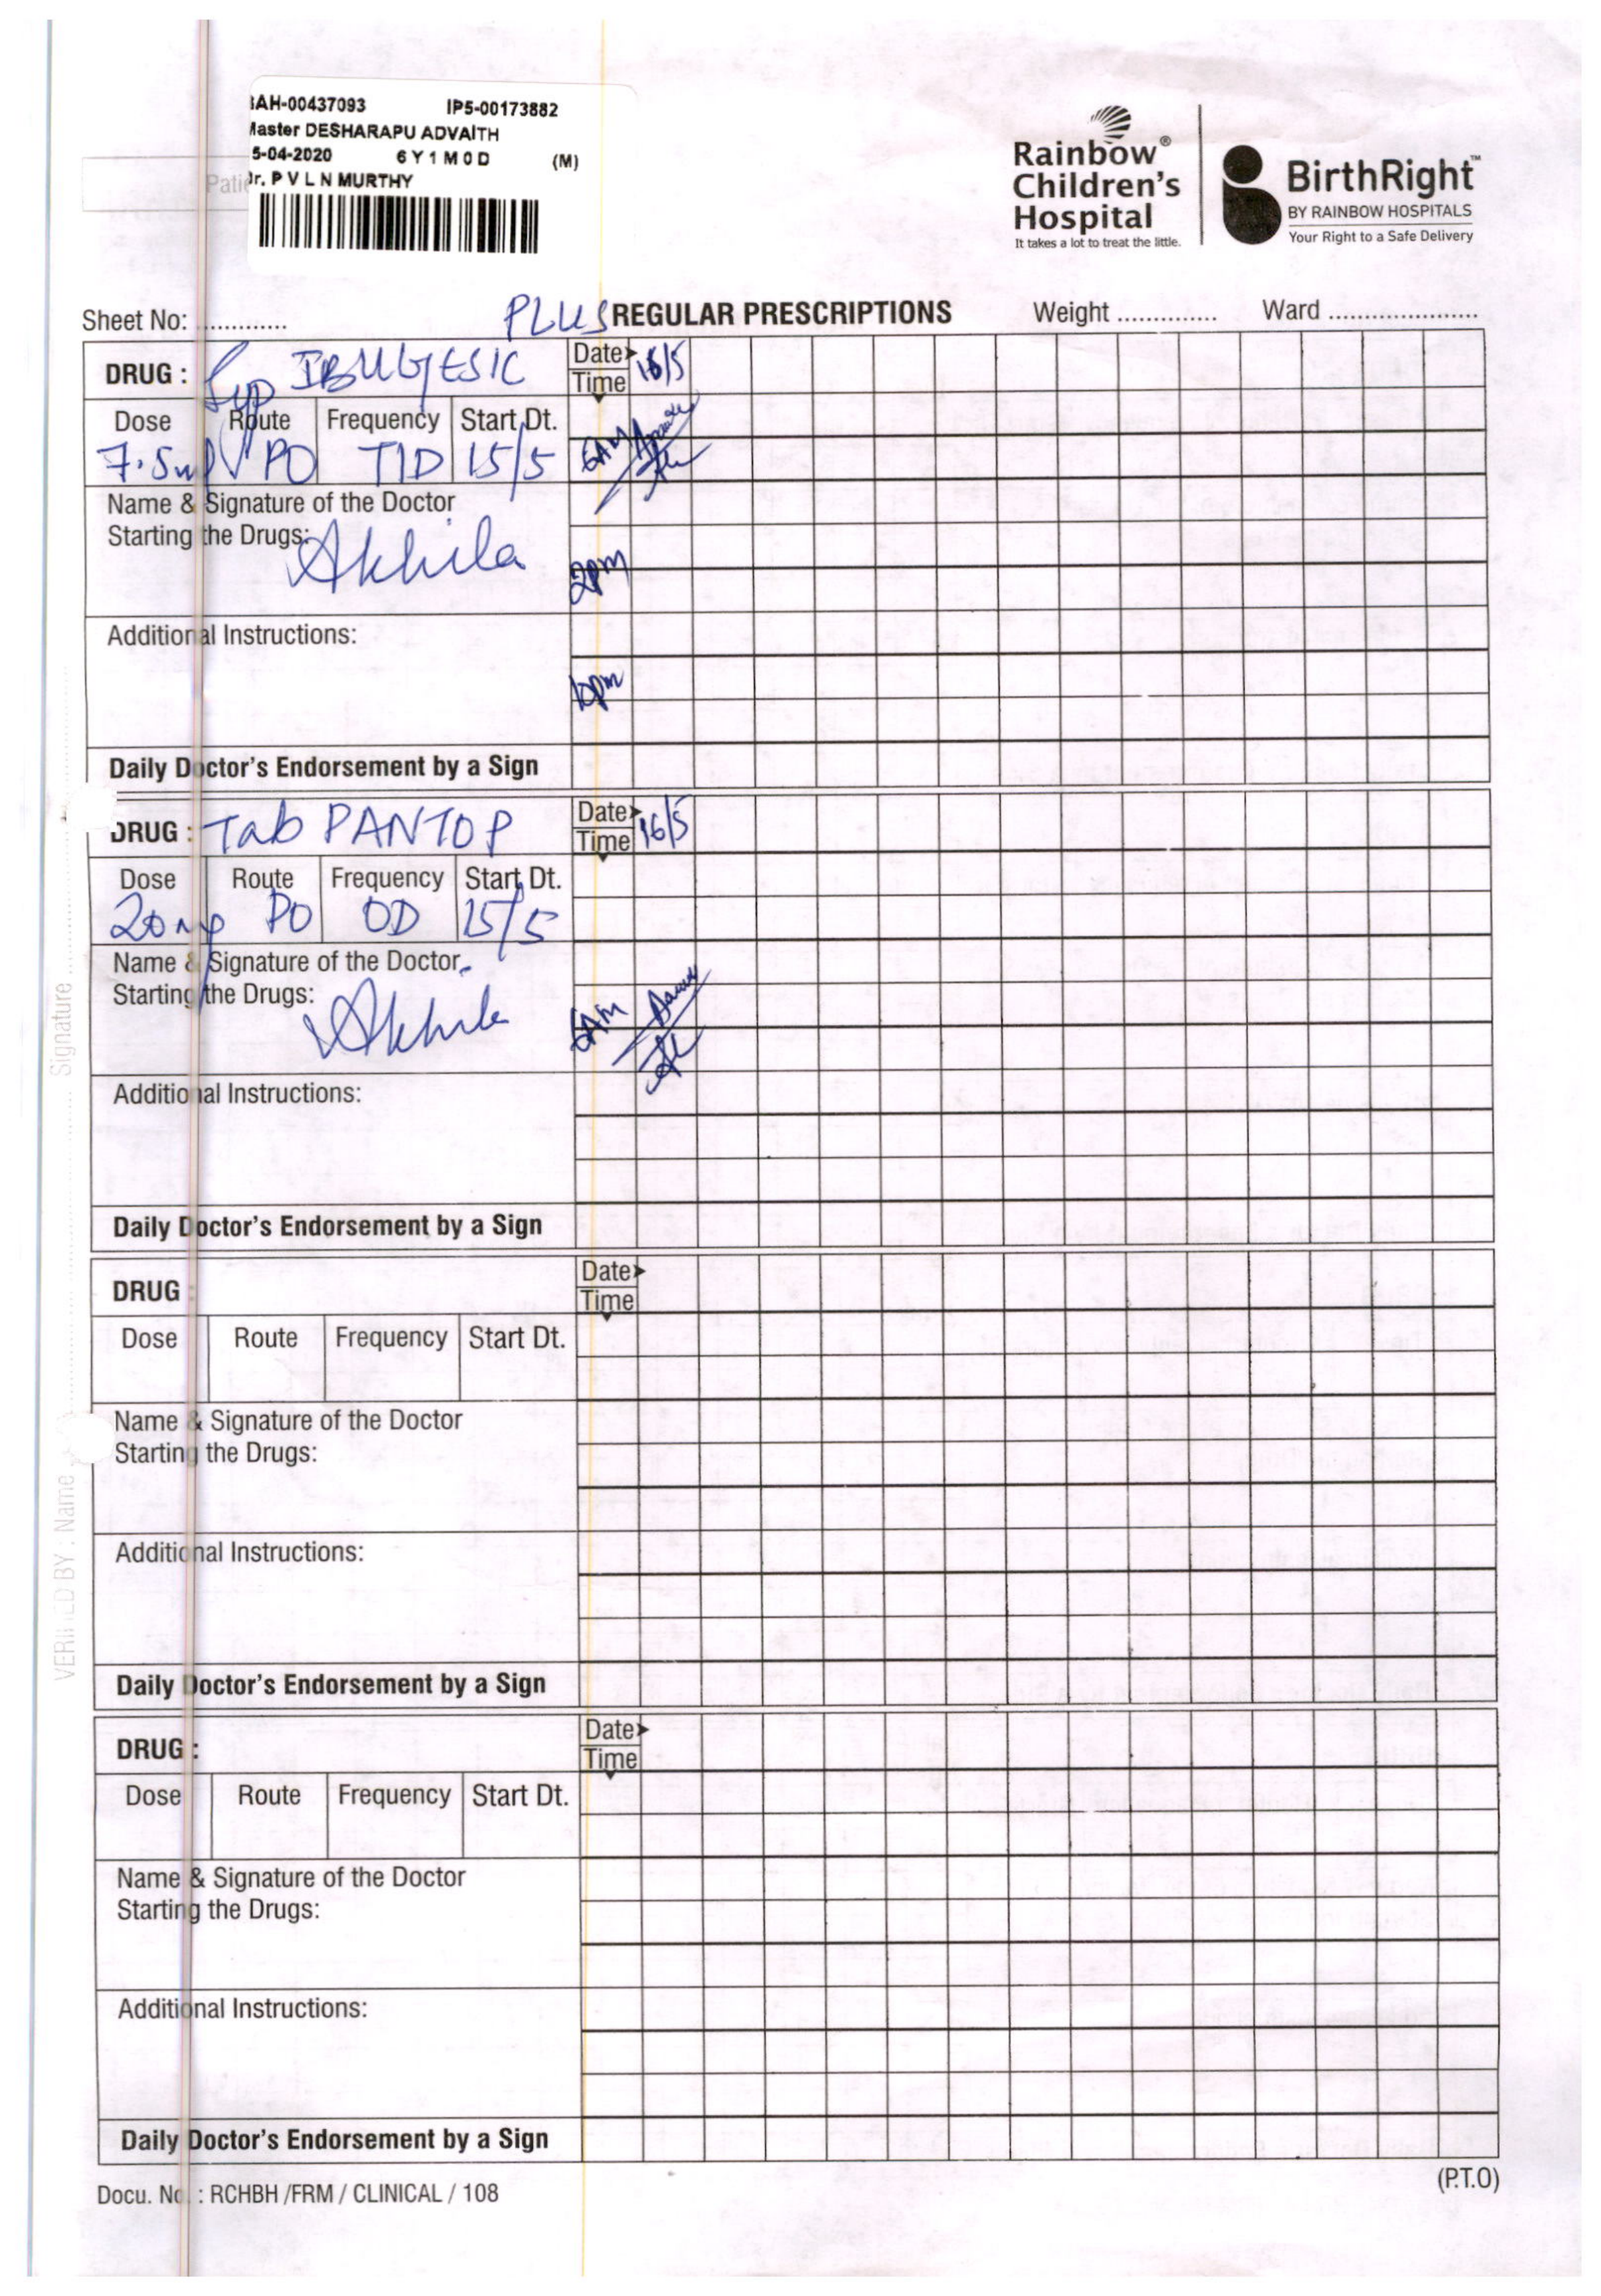 AH-00437093 IP5-00173882
Master DESHARAPU ADVAITH
5-04-2020 6Y1M0D (M)
Dr. P V L N MURTHY
Rainbow®
Children's
Hospital
It takes a lot to treat the little.
BirthRight™
BY RAINBOW HOSPITALS
Your Right to a Safe Delivery
Sheet No: .............
PLUS REGULAR PRESCRIPTIONS
Weight .............. Ward .....................
DRUG : Syp IBUGESIC
Date 16/5
Time
Dose Route Frequency Start Dt.
7.5ml PO TID 15/5
6AM
Name & Signature of the Doctor
Starting the Drugs: Akhila
2pm
Additional Instructions:
10pm
Daily Doctor's Endorsement by a Sign
DRUG : Tab PANTOP
Date 16/5
Time
Dose Route Frequency Start Dt.
20mg PO OD 15/5
Name & Signature of the Doctor
Starting the Drugs: Akhila
6AM
Additional Instructions:
Daily Doctor's Endorsement by a Sign
DRUG :
Date
Time
Dose Route Frequency Start Dt.
Name & Signature of the Doctor
Starting the Drugs:
Additional Instructions:
Daily Doctor's Endorsement by a Sign
DRUG :
Date
Time
Dose Route Frequency Start Dt.
Name & Signature of the Doctor
Starting the Drugs:
Additional Instructions:
Daily Doctor's Endorsement by a Sign
Docu. No. : RCHBH /FRM / CLINICAL / 108
(P.T.O)
VERIFIED BY : Name Signature